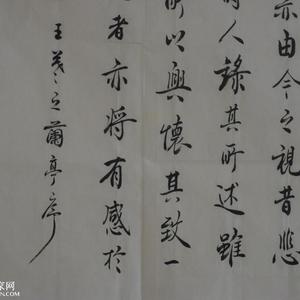 亦由今之視昔悲
時人錄其所述雖
所以興懷其致一
者亦将有感於
王羲之蘭亭序
家网
.COM